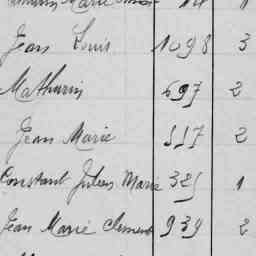 Jean Louis 1098 3
Mathurin 697 2
Jean Marie 557 2
Constant Julien Marie 325 1
Jean Marie Clement 939 2